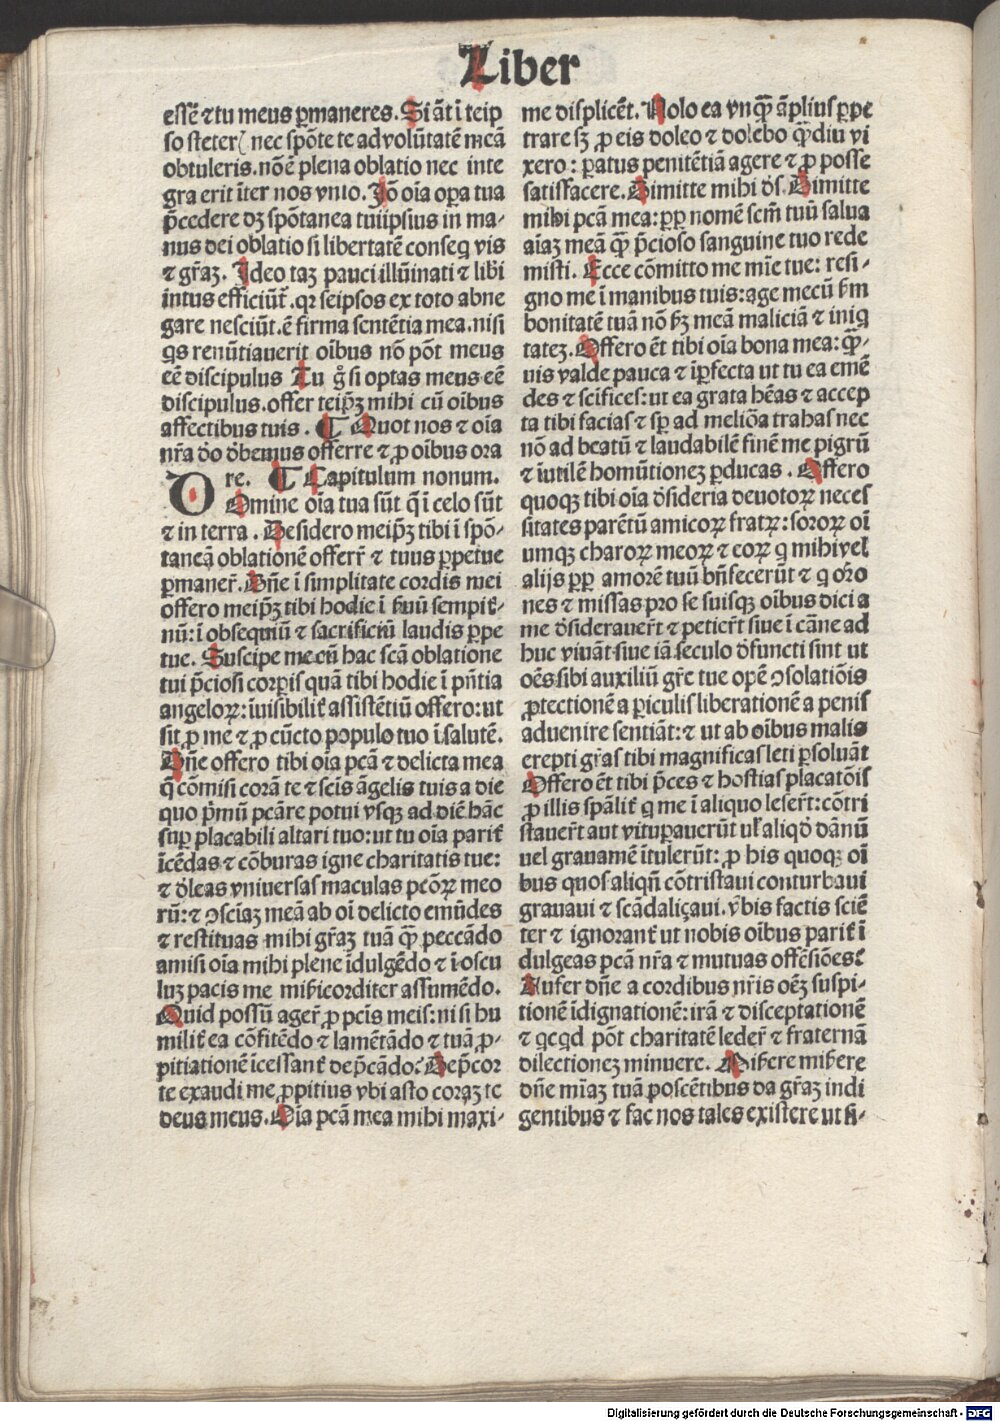 Liber
essẽ ⁊ tu meus ꝑmaneres. Si ãt ĩ teip
so steter̃ nec spõte te ad volũtatẽ meã
obtuleris. nõ ẽ plena oblatio nec inte
gra erit ĩter nos vnio. Jõ oĩa oꝑa tua
p̃cedere dꝫ spõtanea tuiipsius in ma-
nus dei oblatio si libertatẽ conseq̃ vis
⁊ gr̃aꝫ. Ideo taꝫ pauci illũinati ⁊ libi
intus efficiũt̃. qꝛ seipsos ex toto abne
gare nesciũt. ẽ firma sentẽtia mea. nisi
qs renũtiauerit oĩbus nõ põt meus
eẽ discipulus Tu g̊ si optas meus eẽ
discipulus. offer teip̃ꝫ mihi cũ oĩbus
affectibus tuis. ¶ Quot nos ⁊ oĩa
nr̃a do d̃bemus offerre ⁊ ꝓ oĩbus ora
re. ¶ Capitulum nonum.
DOmine oĩa tua sũt q̃ ĩ celo sũt
⁊ in terra. Desidero meip̃ꝫ tibi ĩ spõ-
taneã oblationẽ offerr̃ ⁊ tuus ꝑpetue
ꝑmaner̃. Dñe ĩ simplitate cordis mei
offero meip̃ꝫ tibi hodie ĩ ẜuũ sempit̃-
nũ: ĩ obsequiũ ⁊ sacrificiũ laudis ꝑpe
tue. Suscipe me cũ hac scã oblatione
tui p̃ciosi corꝑis quã tibi hodie ĩ pñtia
angeloꝝ: ĩuisibilit̃ assistẽtiũ offero: ut
sit ꝓ me ⁊ ꝓ cũcto populo tuo ĩ salutẽ.
Dñe offero tibi oĩa pcã ⁊ delicta mea
q̃ cõmisi corã te ⁊ scis ãgelis tuis a die
quo p̃mũ pcãre potui vsqꝫ ad diẽ hãc
suꝑ placabili altari tuo: ut tu oĩa parit̃
ĩcẽdas ⁊ cõburas igne charitatis tue:
⁊ d̃leas vniuersas maculas pcõꝝ meo
rũ: ⁊ ꝯsciaꝫ meã ab oĩ delicto emũdes
⁊ restituas mihi gr̃aꝫ tuã q̃ꝫ peccãdo
amisi oĩa mihi plene ĩdulgẽdo ⁊ ĩ oscu
luꝫ pacis me mib̃icorditer assumẽdo.
Quid possũ ager̃ ꝓ pcis meis: ni si hu
milit̃ ea cõfitẽdo ⁊ lamẽtãdo ⁊ tuã ꝓ-
pitiationẽ ĩcessant̃ dep̃cãdo? Dep̃cor
te exaudi me ꝓpitius vbi asto coraꝫ te
deus meus. Oĩa pcã mea mihi maxi-
me displicẽt. Nolo ea vnq̃ꝫ ãplius ꝑpe
trare sꝫ ꝓ eis doleo ⁊ dolebo q̃ꝫdiu vi
xero: ꝑatus penitẽtiã agere ⁊ ꝓ posse
satisfacere. Dimitte mihi d̃s. Dimitte
mihi pcã mea: ꝓꝑ nomẽ scm̃ tuũ salua
aĩaꝫ meã q̃ꝫ p̃cioso sanguine tuo rede
misti. Ecce cõmitto me mĩe tue: resi-
gno me ĩ manibus tuis: age mecũ ẜm
bonitatẽ tuã nõ ẜꝫ meã maliciã ⁊ iniq̃
tateꝫ. Offero ẽt tibi oĩa bona mea: q̃ꝫ-
uis valde pauca ⁊ ĩꝑfecta ut tu ea emẽ
des ⁊ scifices: ut ea grata hẽas ⁊ accep
ta tibi facias ⁊ sꝑ ad meliõa trahas nec
nõ ad beatũ ⁊ laudabilẽ finẽ me pigrũ
⁊ ĩutilẽ homũtioneꝫ ꝑducas. Offero
quoqꝫ tibi oĩa d̃sideria deuotoꝝ neces
sitates parẽtũ amicoꝝ fratꝝ: soroꝝ oĩ
umqꝫ charoꝝ meoꝝ ⁊ eoꝝ q̃ mihi vel
alijs ꝓꝑ amorẽ tuũ bñfecerũt ⁊ q̃ oro
nes ⁊ missas pro se suisqꝫ oĩbus dici a
me d̃siderauer̃t ⁊ peticr̃t siue ĩ cãne ad
huc viuãt siue iã seculo d̃functi sint ut
oẽs sibi auxiliũ gr̃e tue opẽ ꝯsolatiõis
ꝓtectionẽ a ꝑiculis liberationẽ a penis
aduenire sentiãt: ⁊ ut ab oĩbus malis
erepti gr̃as tibi magnificas leti ꝑsoluãt
Offero ẽt tibi p̃ces ⁊ hostias placatõis
ꝓ illis spãlit̃ q̃ me ĩ aliquo leser̃t: cõtri
stauer̃t aut vituꝑauerũt ul̃ aliqd̃ dãnũ
uel grauamẽ ĩtulerũt: ꝓ his quoqꝫ oĩ
bus quos aliqñ cõtristaui conturbaui
grauaui ⁊ scãdaliçaui. v̾bis factis sciẽ
ter ⁊ ignorant̃ ut nobis oĩbus parit̃ ĩ
dulgeas pcã nr̃a ⁊ mutuas offẽsiões:
Aufer dñe a cordibus nr̃is oẽꝫ suspi-
tionẽ ĩdignationẽ: irã ⁊ disceptationẽ
⁊ qcqd põt charitatẽ leder̃ ⁊ fraternã
dilectioneꝫ minuere. Miẜere miẜere
dñe mĩaꝫ tuã poscẽtibus da gr̃aꝫ indi
gentibus ⁊ fac nos tales existere ut si-
Digitalisierung gefördert durch die Deutsche Forschungsgemeinschaft - DFG